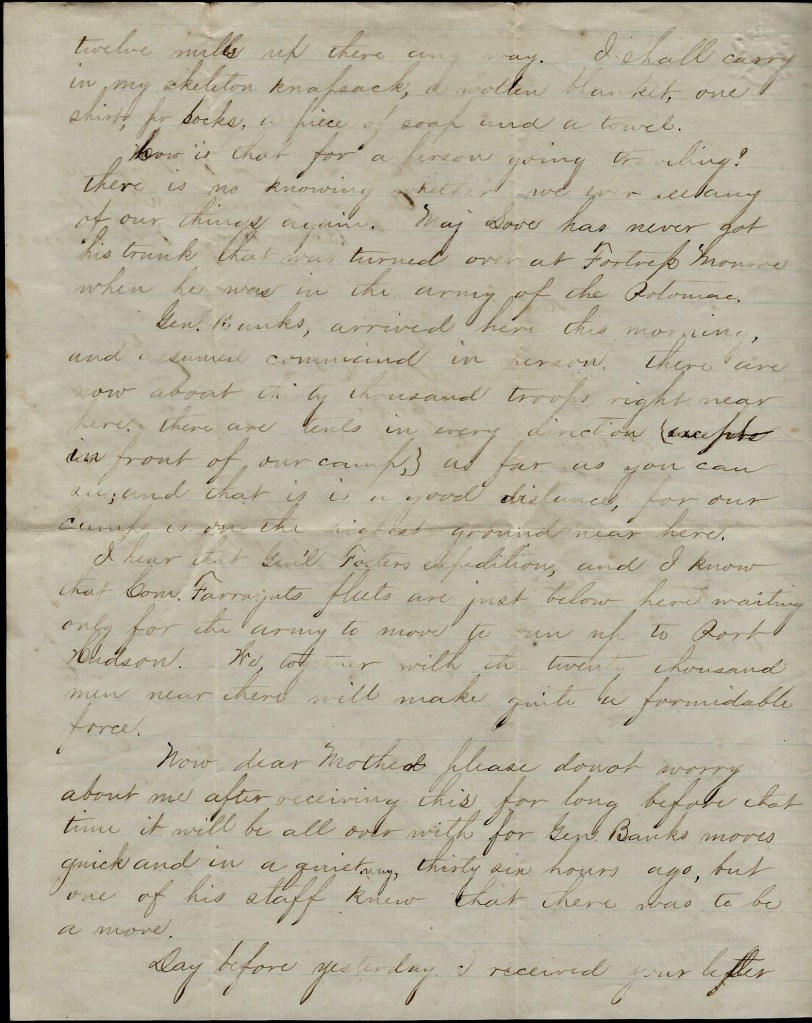 twelve mills up there any way. I shall carry
in my skeleton knapsack, a wollen blanket, one
shirt, pr socks, a piece of soap and a towel.
how is that for a person going traviling?
there is no knowing whether we ever see any
of our things again. Maj Love has never got
his trunk that was turned over at Fortress Monroe
when he was in the army of the Potomac.
Gen. Banks, arrived here this morning,
and assumed command in person. there are
now about thirty thousand troops right near
here. there are tents in every direction {excepts
in front of our camp,} as far as you can
see; and that is is a good distance, for our
camp is on the highest ground near here.
I hear that Gen'l Fosters expedition, and I know
that Com. Farraguts fleets are just below here waiting
only for the army to move to run up to Port
Hudson. We, together with the twenty thousand
men near there will make quite a formidable
force.
Now dear Mother please donot worry
about me after receiving this for long before that
time it will be all over with for Gen. Banks moves
quick and in a quiet way, thirty six hours ago, but
one of his staff knew that there was to be
a move.
Day before yesterday I received your letter